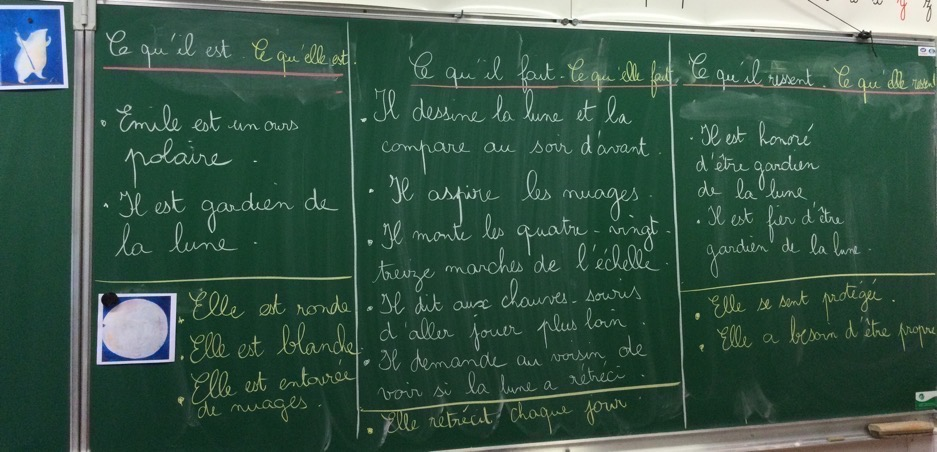 Ce qu'il est. Ce qu'elle est.
• Émile est un ours
polaire.
• Il est gardien de
la lune.
• Elle est ronde
• Elle est blanche
• Elle est entourée
de nuages.
Ce qu'il fait. Ce qu'elle fait.
• Il dessine la lune et la
compare au soir d'avant.
• Il aspire les nuages.
• Il monte les quatre-vingt-
treize marches de l'échelle.
• Il dit aux chauves-souris
d'aller jouer plus loin.
• Il demande au voisin de
voir si la lune a rétréci.
• Elle rétrécit chaque jour.
Ce qu'il ressent. Ce qu'elle ressent
• Il est honoré
d'être gardien
de la lune.
• Il est fier d'être
gardien de la lune.
• Elle se sent protégée.
• Elle a besoin d'être propre